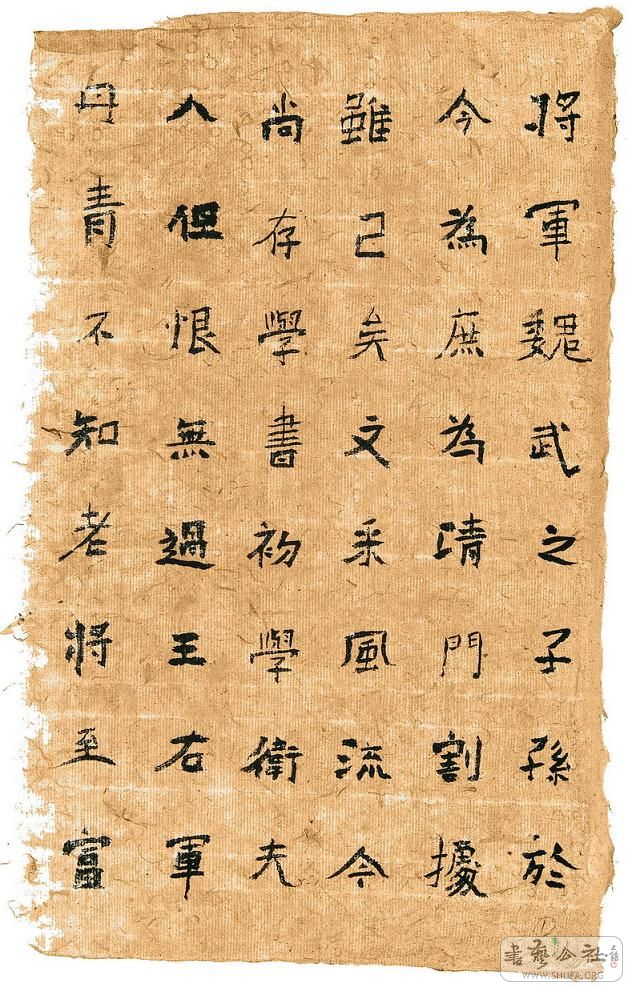 将軍魏武之子孫於
今為庶為清門割據
雖已矣文采風流今
尚存學書初學衛夫
人但恨無過王右軍
丹青不知老将至富
書藝公社
WWW.SHUFA.ORG